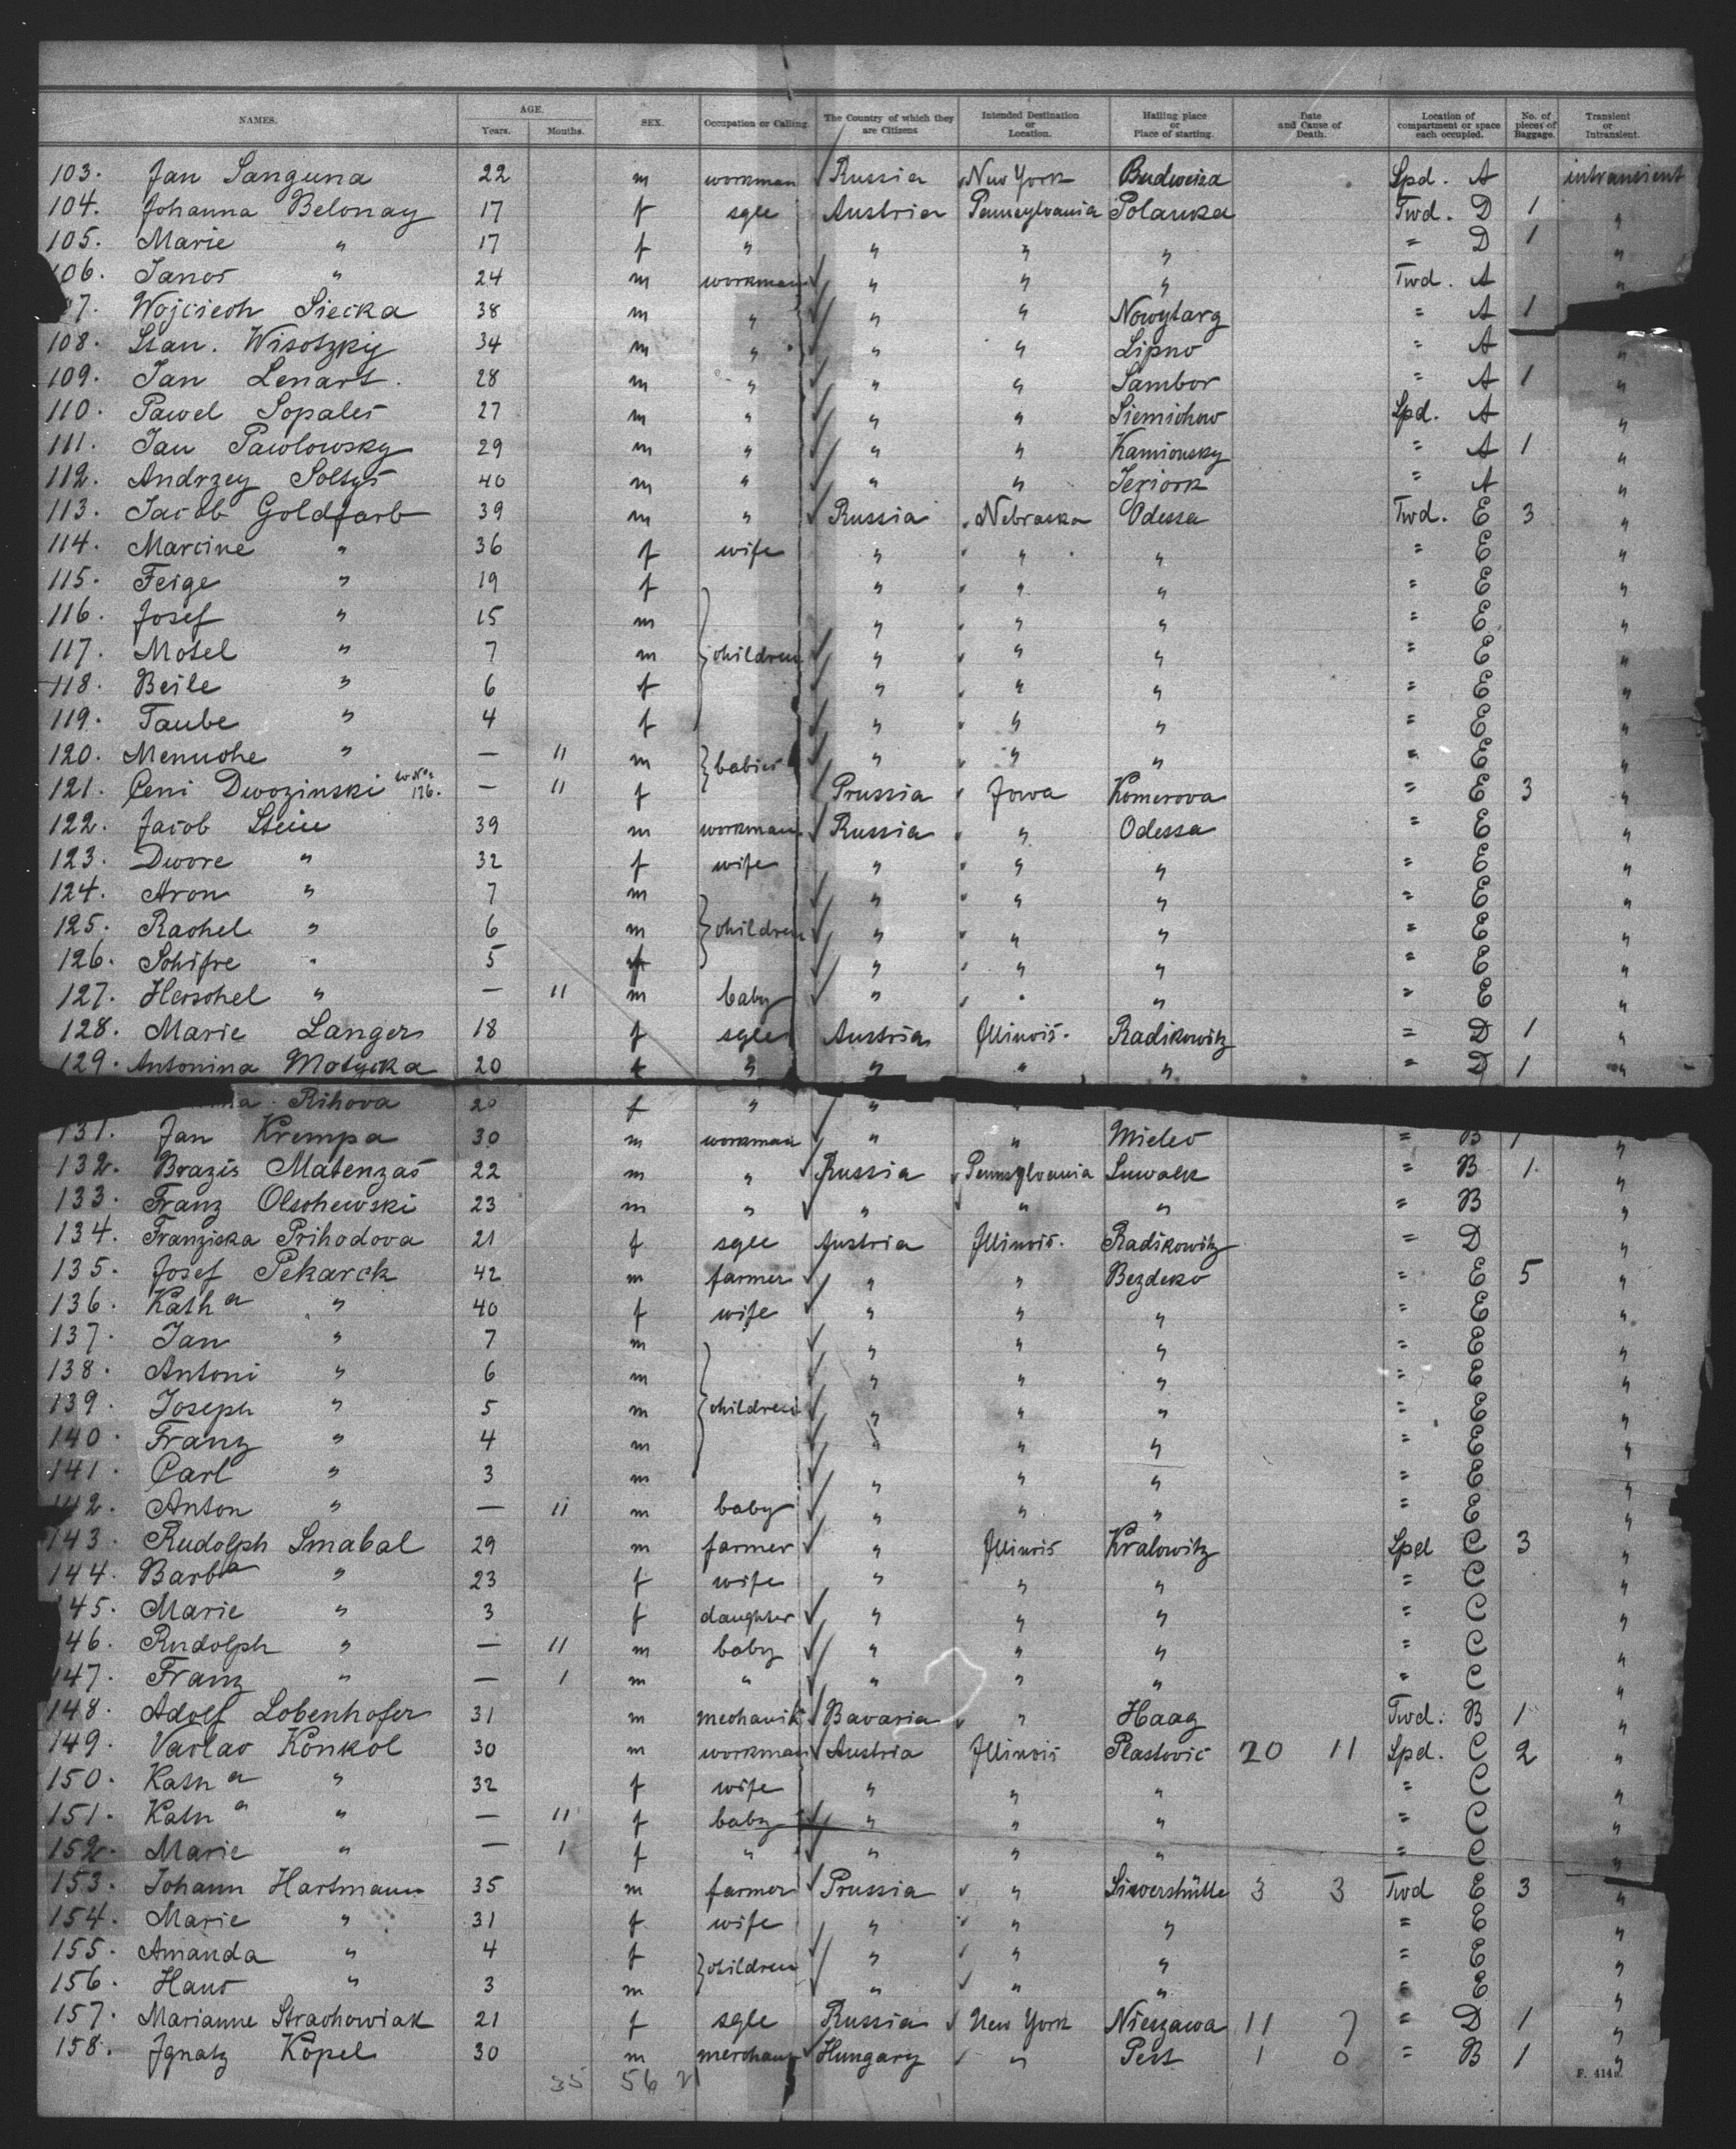 NAMES. AGE. Years. Months. SEX. Occupation or Calling. The Country of which they are Citizens Intended Destination or Location. Hailing place or Place of starting. Date and Cause of Death. Location of compartment or space each occupied. No. of pieces of Baggage. Transient or Intransient.
103. Jan Sanguna 22 m workman Russia New York Budweiza Spd. A intransient
104. Johanna Belonay 17 f sgle Austria Pennsylvania Polanka Twd. D 1 "
105. Marie " 17 f " " " " " D 1 "
106. Janos " 24 m workman " " " Twd. A "
07. Wojciech Siecka 38 m " " " Nowytarg " A 1
108. Stan. Wisotzky 34 m " " " Lipno " A "
109. Jan Lenart. 28 m " " " Sambor " A 1 "
110. Pawel Sopales 27 m " " " Siemichow Spd. A "
111. Jan Pawlowsky 29 m " " " Kamionsky " A 1 "
112. Andrzey Soltys 40 m " " " Jeziork " A "
113. Jacob Goldfarb 39 m " Russia Nebraska Odessa Twd. E 3 "
114. Marcine " 36 f wife " " " " E "
115. Feige " 19 f " " " " E "
116. Josef " 15 m " " " " E "
117. Motel " 7 m children " " " " E "
118. Beile " 6 f " " " " E "
119. Taube " 4 f " " " " E "
120. Menuche " — 11 m babies " " " " E "
121. Ceni Dwozinski 126. — 11 f Prussia Jowa Komerova " E 3 "
122. Jacob Stein 39 m workman Russia " Odessa " E "
123. Dwore " 32 f wife " " " " E "
124. Aron " 7 m " " " " E "
125. Rachel " 6 m children " " " " E "
126. Schifre " 5 f " " " " E "
127. Herschel " — 11 m baby " " " " E "
128. Marie Langer 18 f sgle Austria Illinois. Radikowitz " D 1 "
129. Antonina Motycka 20 f " " " " " D 1 "
na Rihova 20 f " "
131. Jan Krempa 30 m workman " " Mielec " B 1 "
132. Brazis Matenzas 22 m " Russia Pennsylvania Suwalk " B 1. "
133. Franz Olschewski 23 m " " " " " B "
134. Franziska Prihodova 21 f sgle Austria Illinois. Radikowitz " D "
135. Josef Pekarek 42 m farmer " " Bezdeko " E 5 "
136. Katha " 40 f wife " " " " E "
137. Jan " 7 m " " " " E "
138. Antoni " 6 m " " " " E "
139. Joseph " 5 m children " " " " E "
140. Franz " 4 m " " " " E "
141. Carl " 3 m " " " " E "
142. Anton " — 11 m baby " " " " E "
143. Rudolph Smabal 29 m farmer " Illinois Kralowitz Spd C 3 "
144. Barba " 23 f wife " " " " C "
145. Marie " 3 f daughter " " " " C "
46. Rudolph " — 11 m baby " " " " C "
147. Franz " — 1 m " " " " " C "
148. Adolf Lobenhofer 31 m mechanik Bavaria " Haag Twd. B 1 "
149. Vaclav Konkol 30 m workman Austria Illinois Plastovic 20 11 Spd. C 2 "
150. Katha " 32 f wife " " " " C "
151. Katha " — 11 f baby " " " " C "
152. Marie " — 1 f " " " " " C "
153. Johann Hartmann 35 m farmer Prussia " Siewershütte 3 3 Twd E 3 "
154. Marie " 31 f wife " " " " E "
155. Amanda " 4 f children " " " " E "
156. Hans " 3 m " " " " E "
157. Marianne Strachowiak 21 f sgle Russia New York Nieszawa 11 7 " D 1 "
158. Jgnatz Köpel 30 m merchant Hungary " Pest 1 0 " B 1 "
35 56 21 F. 414